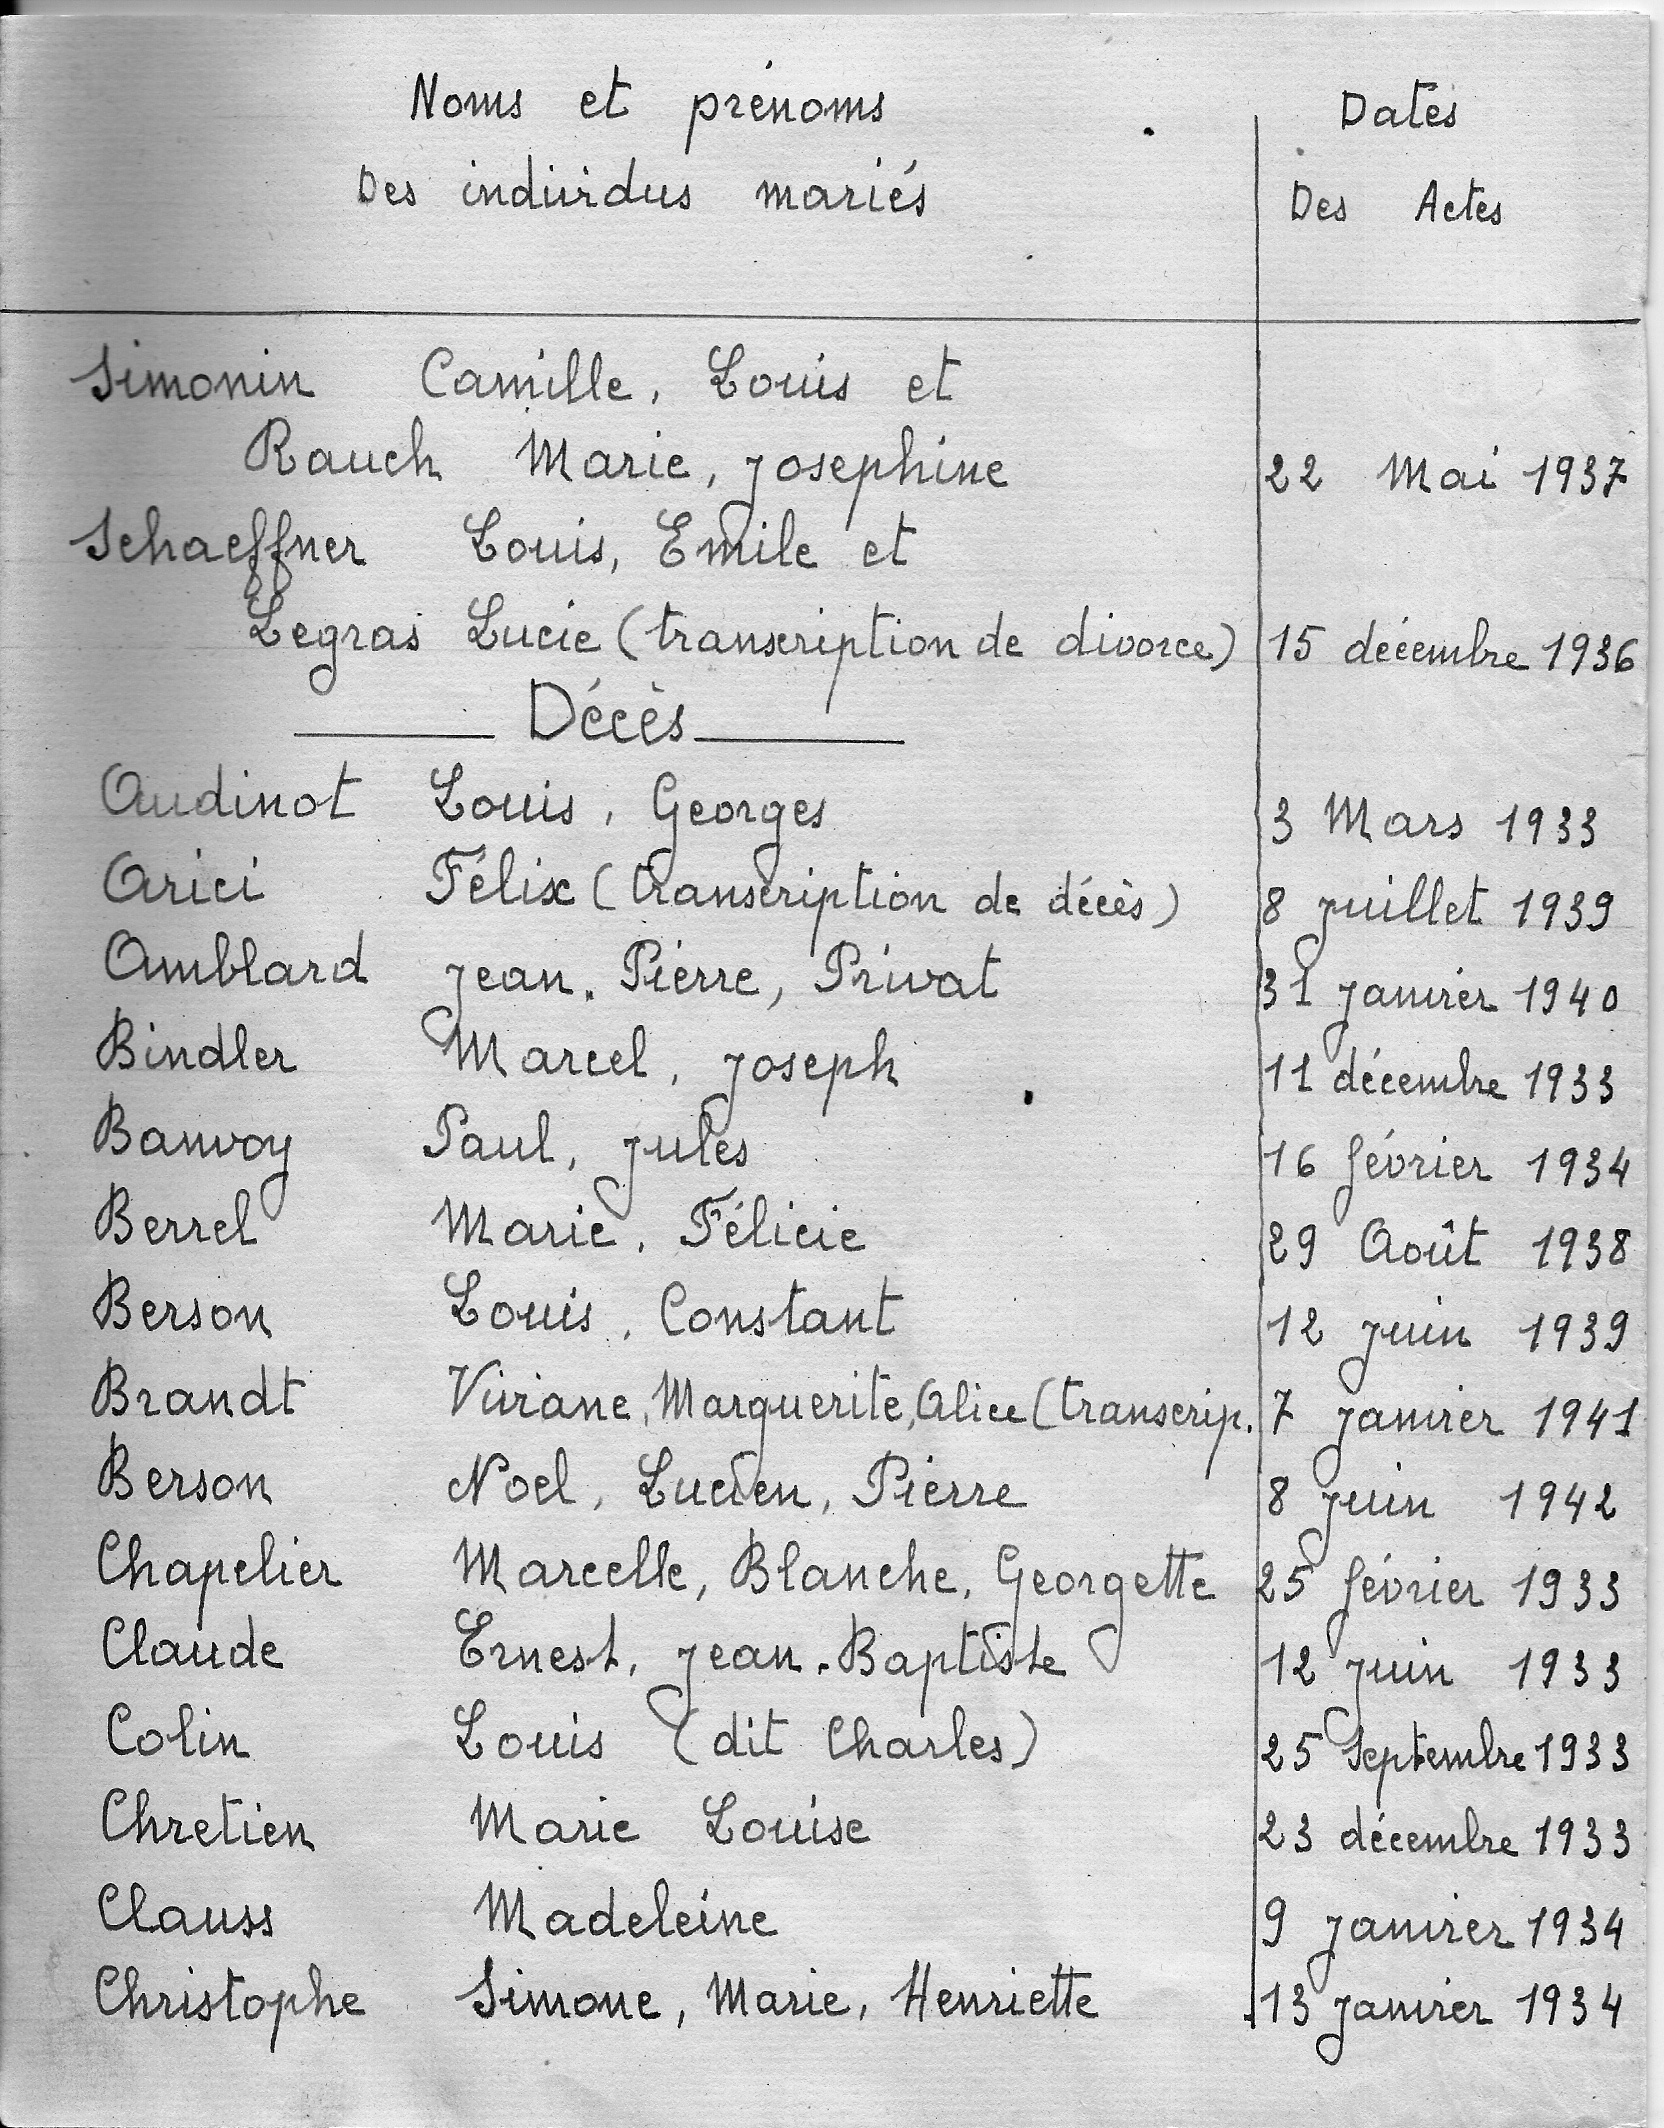 Noms et prénoms
Dates
Des individus mariés
Des Actes
Simonin Camille, Louis et
Rauch Marie, Josephine 22 Mai 1937
Schaeffner Louis, Emile et
Legras Lucie (transcription de divorce) 15 décembre 1936
Décès
Audinot Louis, Georges 3 Mars 1933
Arici Félix (transcription de décès) 8 juillet 1939
Amblard Jean. Pierre, Privat 31 janvier 1940
Bindler Marcel, Joseph 11 décembre 1933
Banvoy Paul, Jules 16 février 1934
Berrel Marie, Félicie 29 Août 1938
Berson Louis, Constant 12 juin 1939
Brandt Viviane, Marguerite, Alice (transcrip. 7 janvier 1941
Berson Noel, Lucien, Pierre 8 juin 1942
Chapelier Marcelle, Blanche, Georgette 25 février 1933
Claude Ernest, Jean-Baptiste 12 juin 1933
Colin Louis (dit Charles) 25 Septembre 1933
Chretien Marie Louise 23 décembre 1933
Clauss Madeleine 9 janvier 1934
Christophe Simone, Marie, Henriette 13 janvier 1934